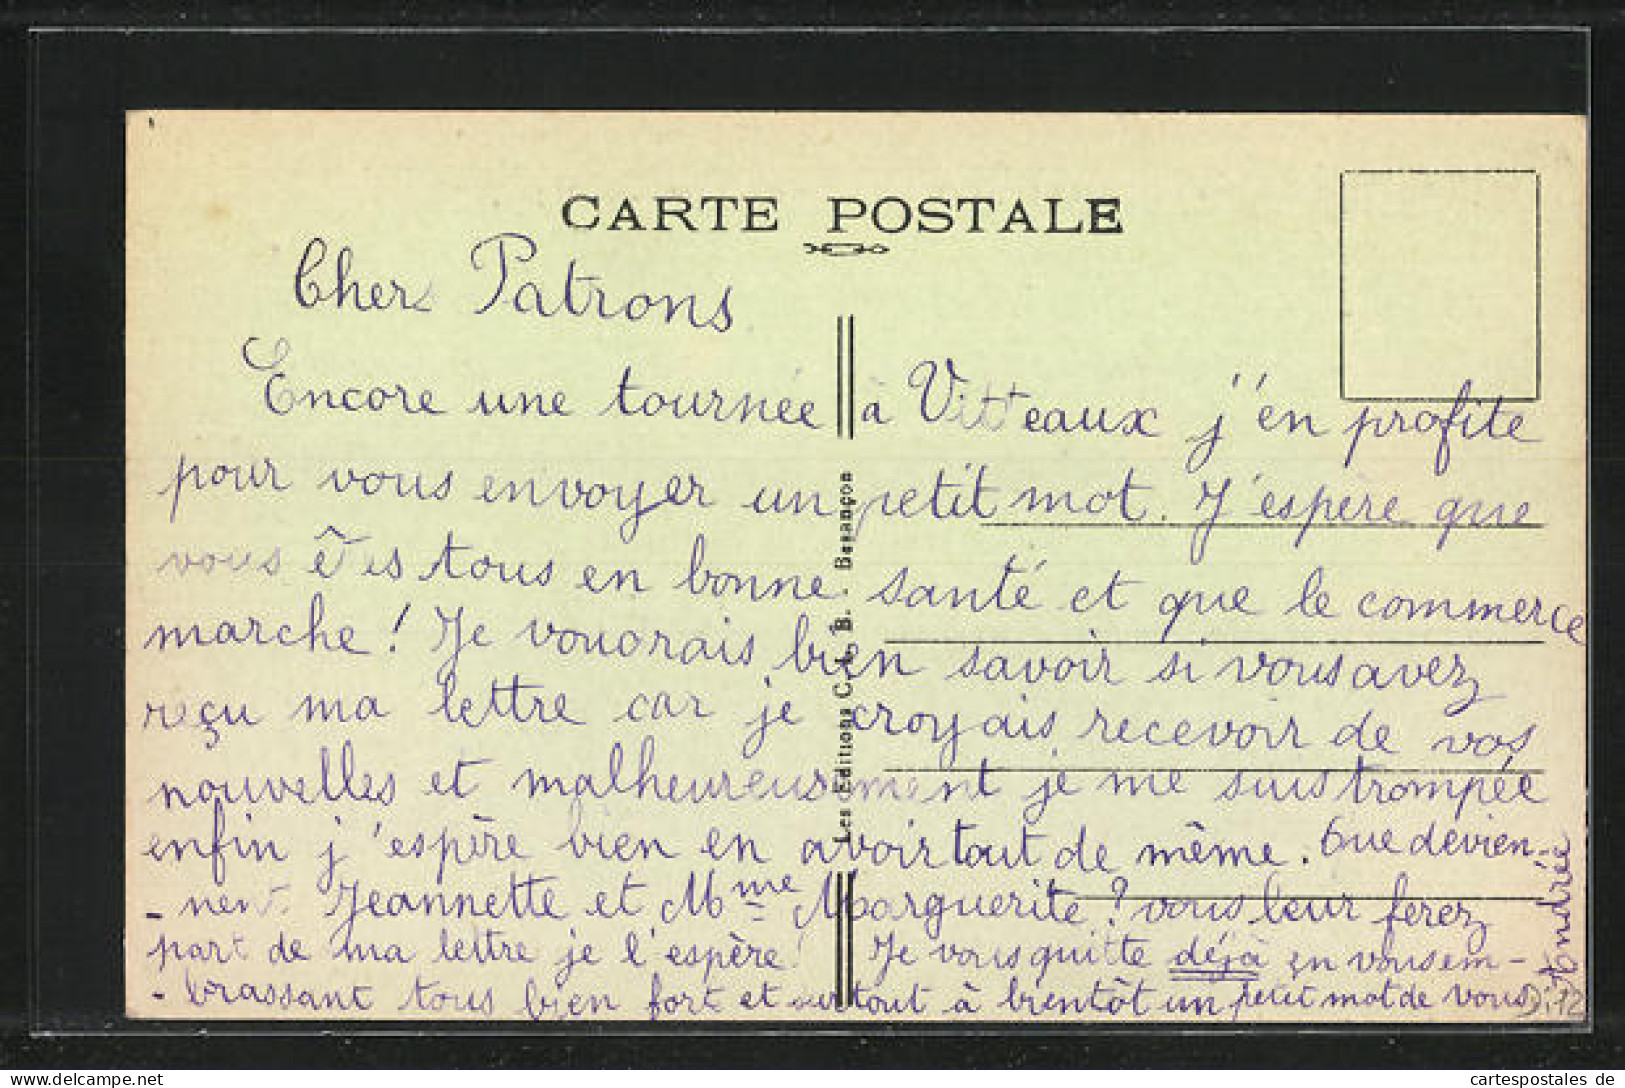 CARTE POSTALE
Chers Patrons
Encore une tournée à Vitteaux j'en profite
pour vous envoyer un petit mot. J'espère que
vous êtes tous en bonne santé et que le commerce
marche ! Je voudrais bien savoir si vous avez
reçu ma lettre car je croyais recevoir de vos
nouvelles et malheureusement je me suis trompée
enfin j'espère bien en avoir tout de même. Que devien-
-nent Jeannette et Mme Marguerite ? vous leur ferez
part de ma lettre je l'espère ! Je vous quitte déjà en vous em-
-brassant tous bien fort et surtout à bientôt un petit mot de vous
Andrée
Les Editions C. L. B. - Besançon
D.12
delcampe.net
cartespostales de